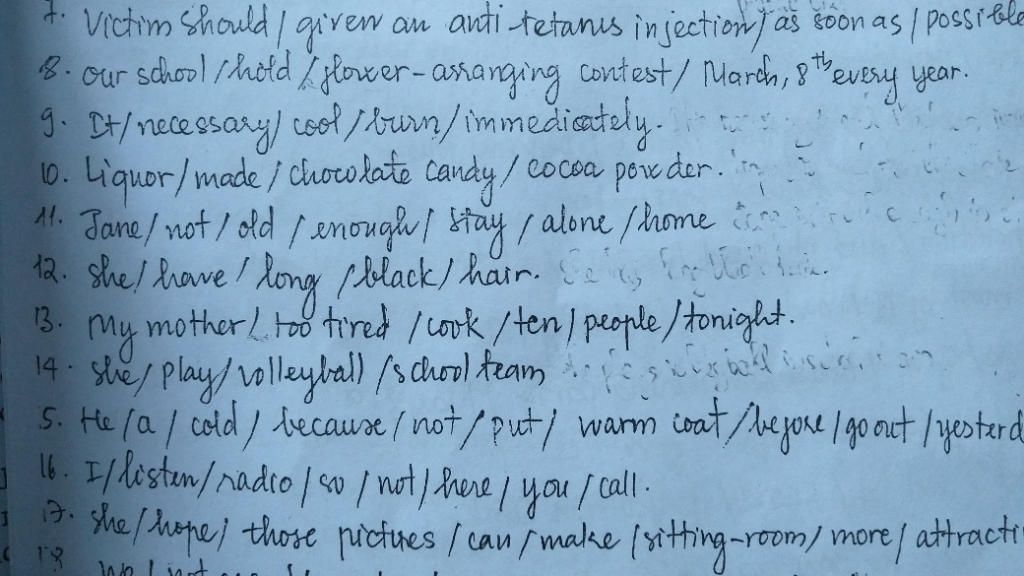 7. Victim should / given an anti-tetanus injection / as soon as / possible
8. our school / hold / flower-arranging contest / March, 8th every year.
9. It / necessary / cool / burn / immediately.
10. Liquor / made / chocolate candy / cocoa powder.
11. Jane / not / old / enough / stay / alone / home
12. she / have / long / black / hair.
13. My mother / too tired / cook / ten / people / tonight.
14. she / play / volleyball / school team
5. He / a / cold / because / not / put / warm coat / before / go out / yesterd
16. I / listen / radio / so / not / here / you / call.
17. she / hope / those pictures / can / make / sitting-room / more / attracti
18